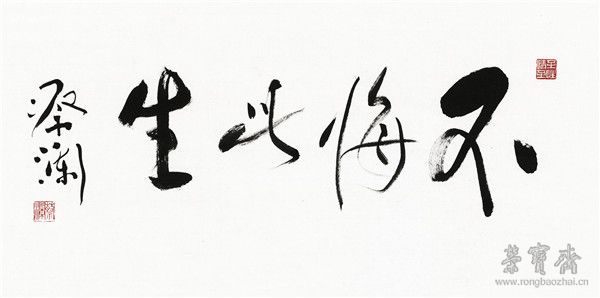 不悔此生
蔡澜
榮寶齋
www.rongbaozhai.cn